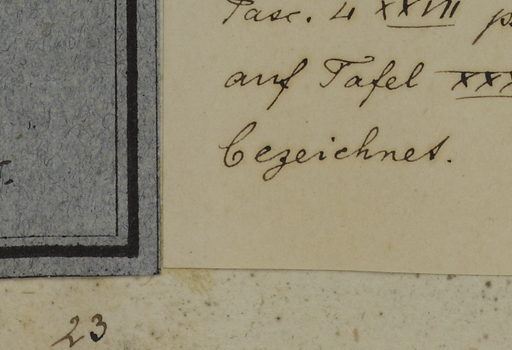 Fasc. 4 XXVIII
auf Tafel XXX
bezeichnet.
23